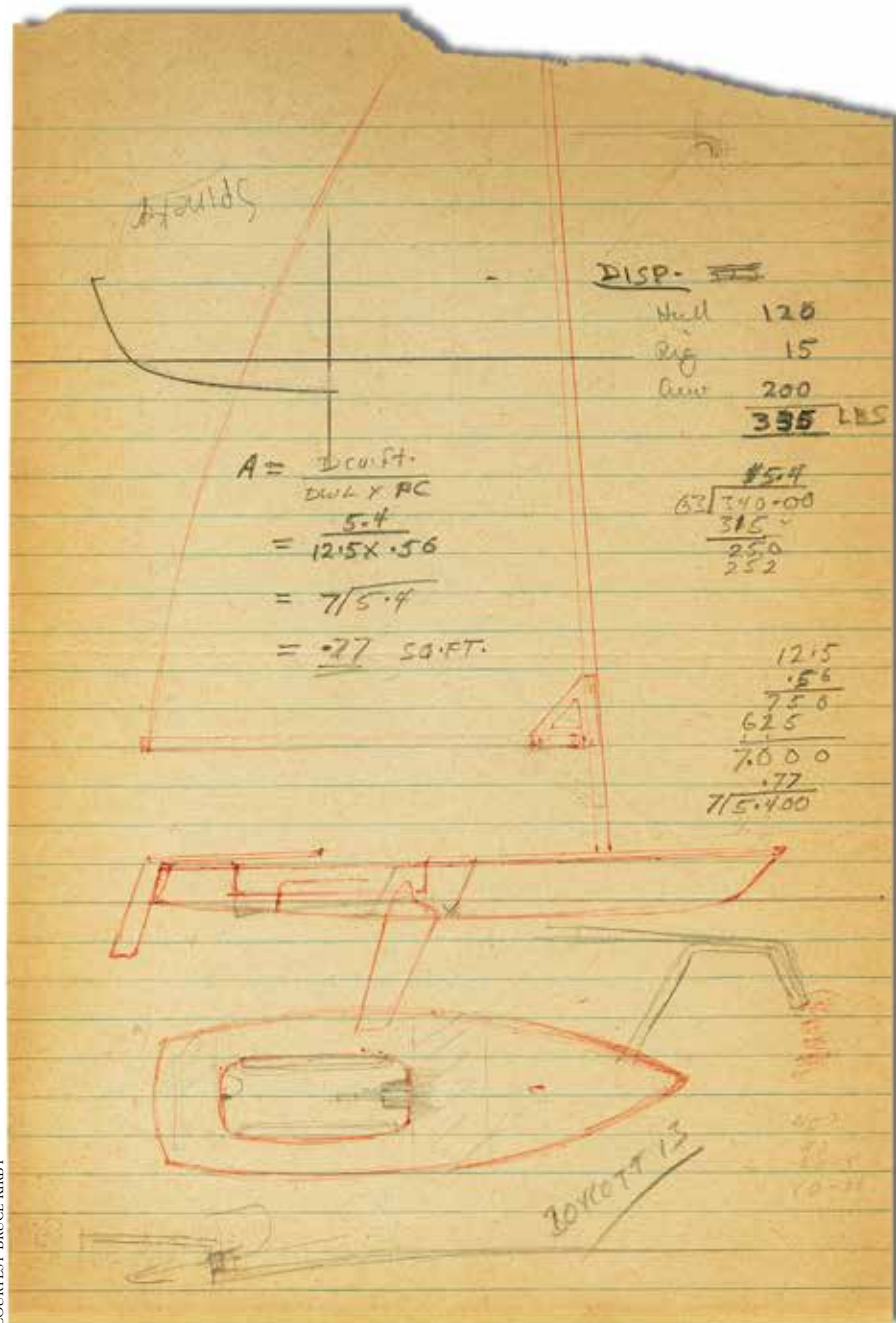 DISP.
Hull 120
Rig 15
Crew 200
335 LBS
A = D cu.ft.
DWL X PC
= 5.4
12.5 X .56
= 7/5.4
= .77 SQ.FT.
5.4
63/340.00
315
250
252
12.5
.56
750
625
7.000
.77
7/5.400
BOYCOTT 13
COURTESY BRUCE KIRBY